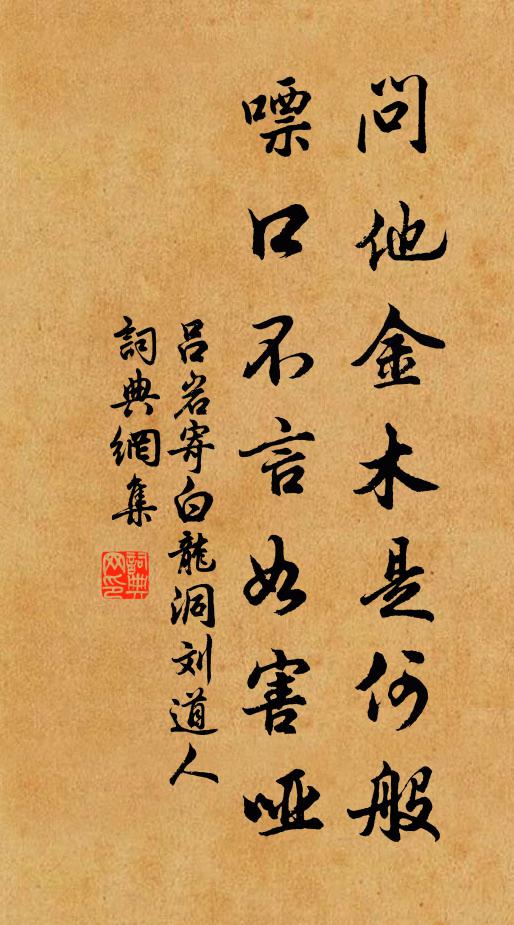 問他金木是何般
嘌口不言如害啞
吕岩寄白龍洞刘道人
詞典網集
詞典网印